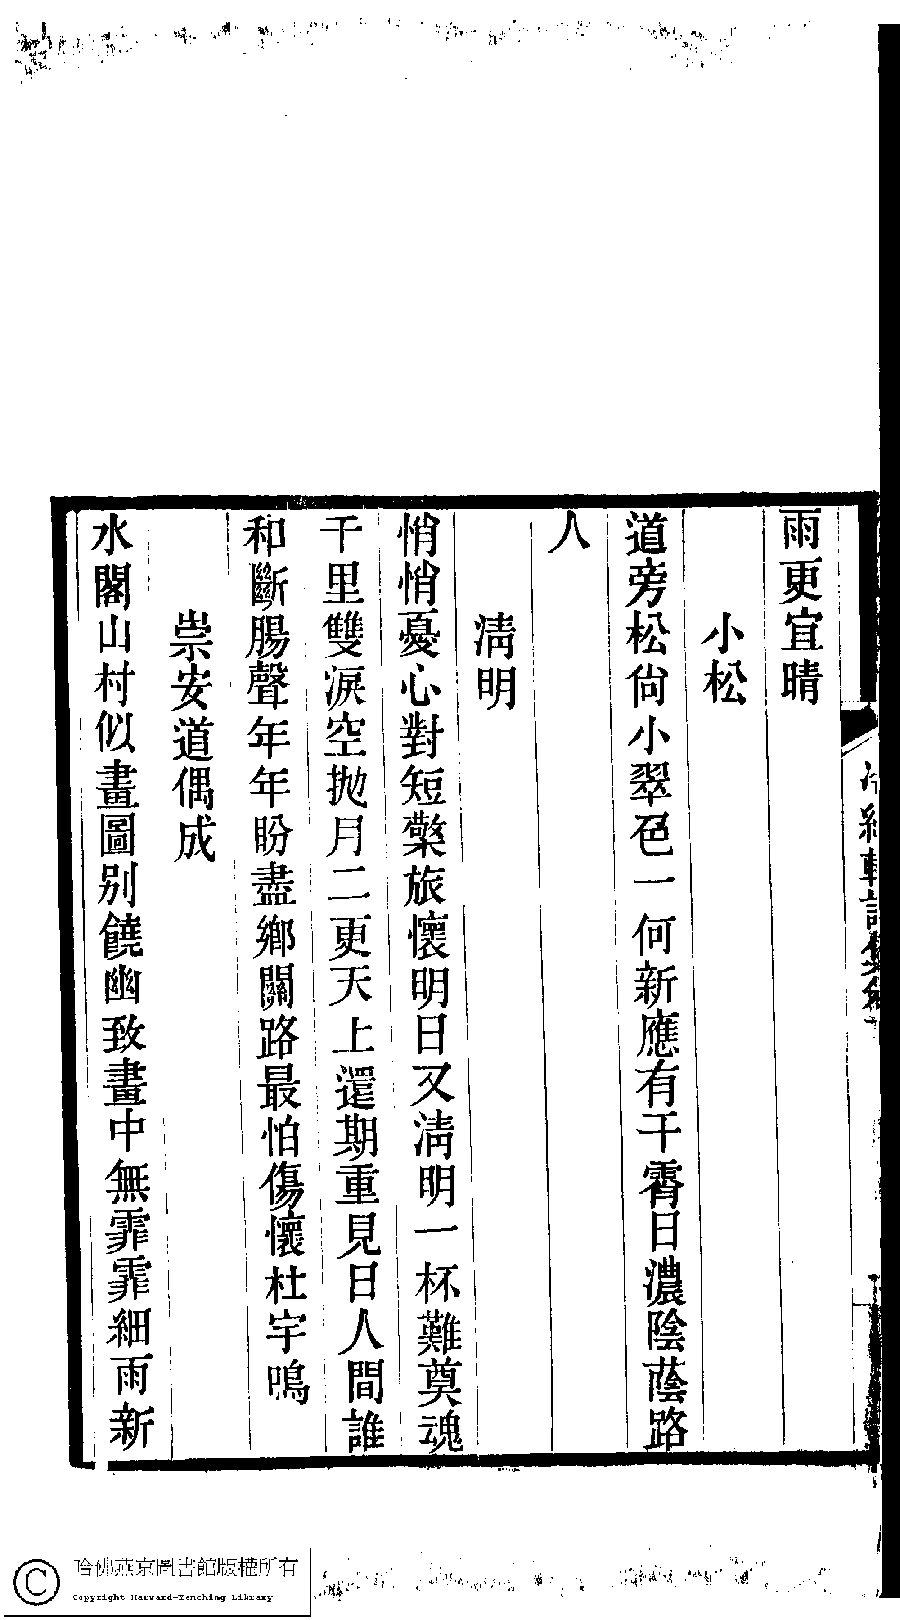 雨更宜晴
小松
道旁松尙小翠色一何新應有干霄日濃陰蔭路
人
淸明
悄悄憂心對短檠旅懷明日又淸明一杯難奠魂
千里雙淚空拋月二更天上還期重見日人間誰
和斷腸聲年年盼盡鄉關路最怕傷懷杜宇鳴
崇安道偶成
水閣山村似畫圖別饒幽致畫中無霏霏細雨新
哈佛燕京圖書館版權所有
Copyright Harvard-Yenching Library